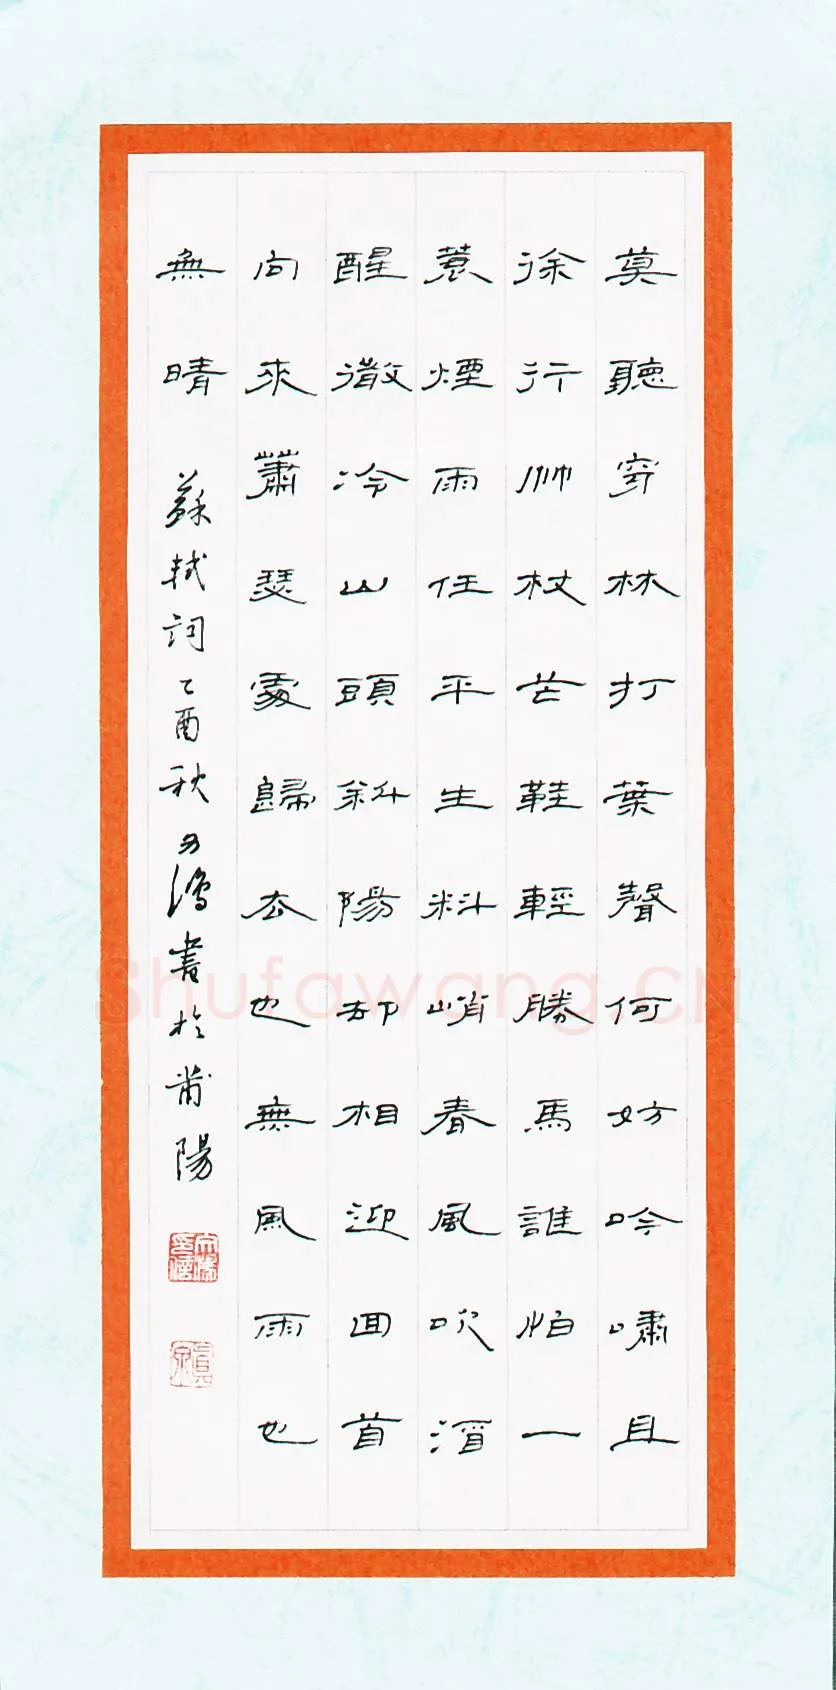 莫聽穿林打葉聲何妨吟嘯且
徐行竹杖芒鞋輕勝馬誰怕一
蓑煙雨任平生料峭春風吹酒
醒微冷山頭斜陽却相迎回首
向來蕭瑟處歸去也無風雨也
無晴 蘇軾詞乙酉秋鴻書於莆陽
Shufawang.CN